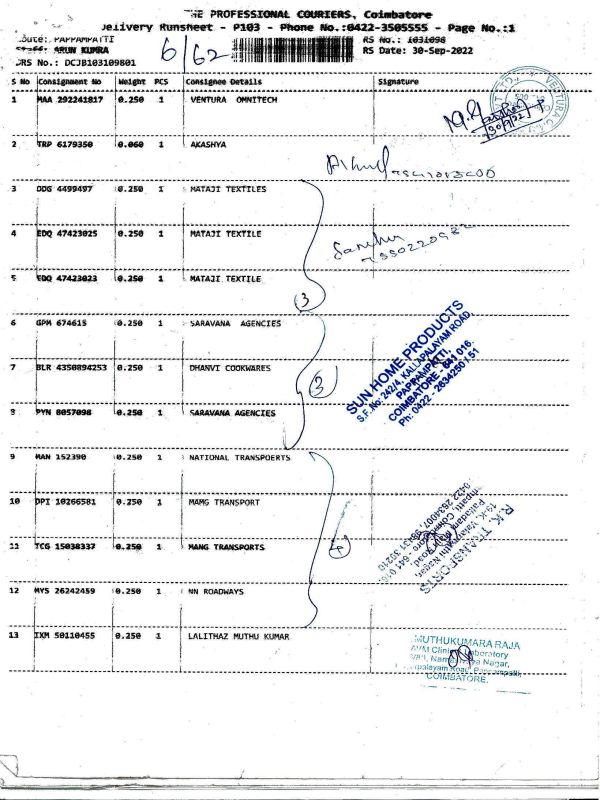 THE PROFESSIONAL COURIERS, Coimbatore
Delivery Runsheet - P103 - Phone No.:0422-3505555 - Page No.:1
Route: PAPPAMPATTI 6/62 RS No.: 1031098
Staff: ARUN KUMRA RS Date: 30-Sep-2022
DRS No.: DCJB103109801
S No Consignment No Weight PCS Consignee Details Signature
1 MAA 292241817 0.250 1 VENTURA OMNITECH
2 TRP 6179350 0.060 1 AKASHYA
3 DDG 4499497 0.250 1 MATAJI TEXTILES
4 EDQ 47423025 0.250 1 MATAJI TEXTILE
5 EDQ 47423023 0.250 1 MATAJI TEXTILE
3
6 GPM 674615 0.250 1 SARAVANA AGENCIES
7 BLR 4350894253 0.250 1 DHANVI COOKWARES
3
8 PYN 8057098 0.250 1 SARAVANA AGENCIES
SUN HOME PRODUCTS
S.F.No:242/4, KALLAPALAYAM ROAD,
PAPPAMPATTI,
COIMBATORE - 641 016.
Ph: 0422 - 2634250 / 51
9 MAN 152390 0.250 1 NATIONAL TRANSPOERTS
10 DPI 10266581 0.250 1 MAMG TRANSPORT
11 TCG 15038337 0.250 1 MANG TRANSPORTS
4
R.K. TRANSPORTS
12 MYS 26242459 0.250 1 NN ROADWAYS
13 IXM 50110455 0.250 1 LALITHAZ MUTHU KUMAR
MUTHUKUMARA RAJA
Laboratory
Nagar,
COIMBATORE.